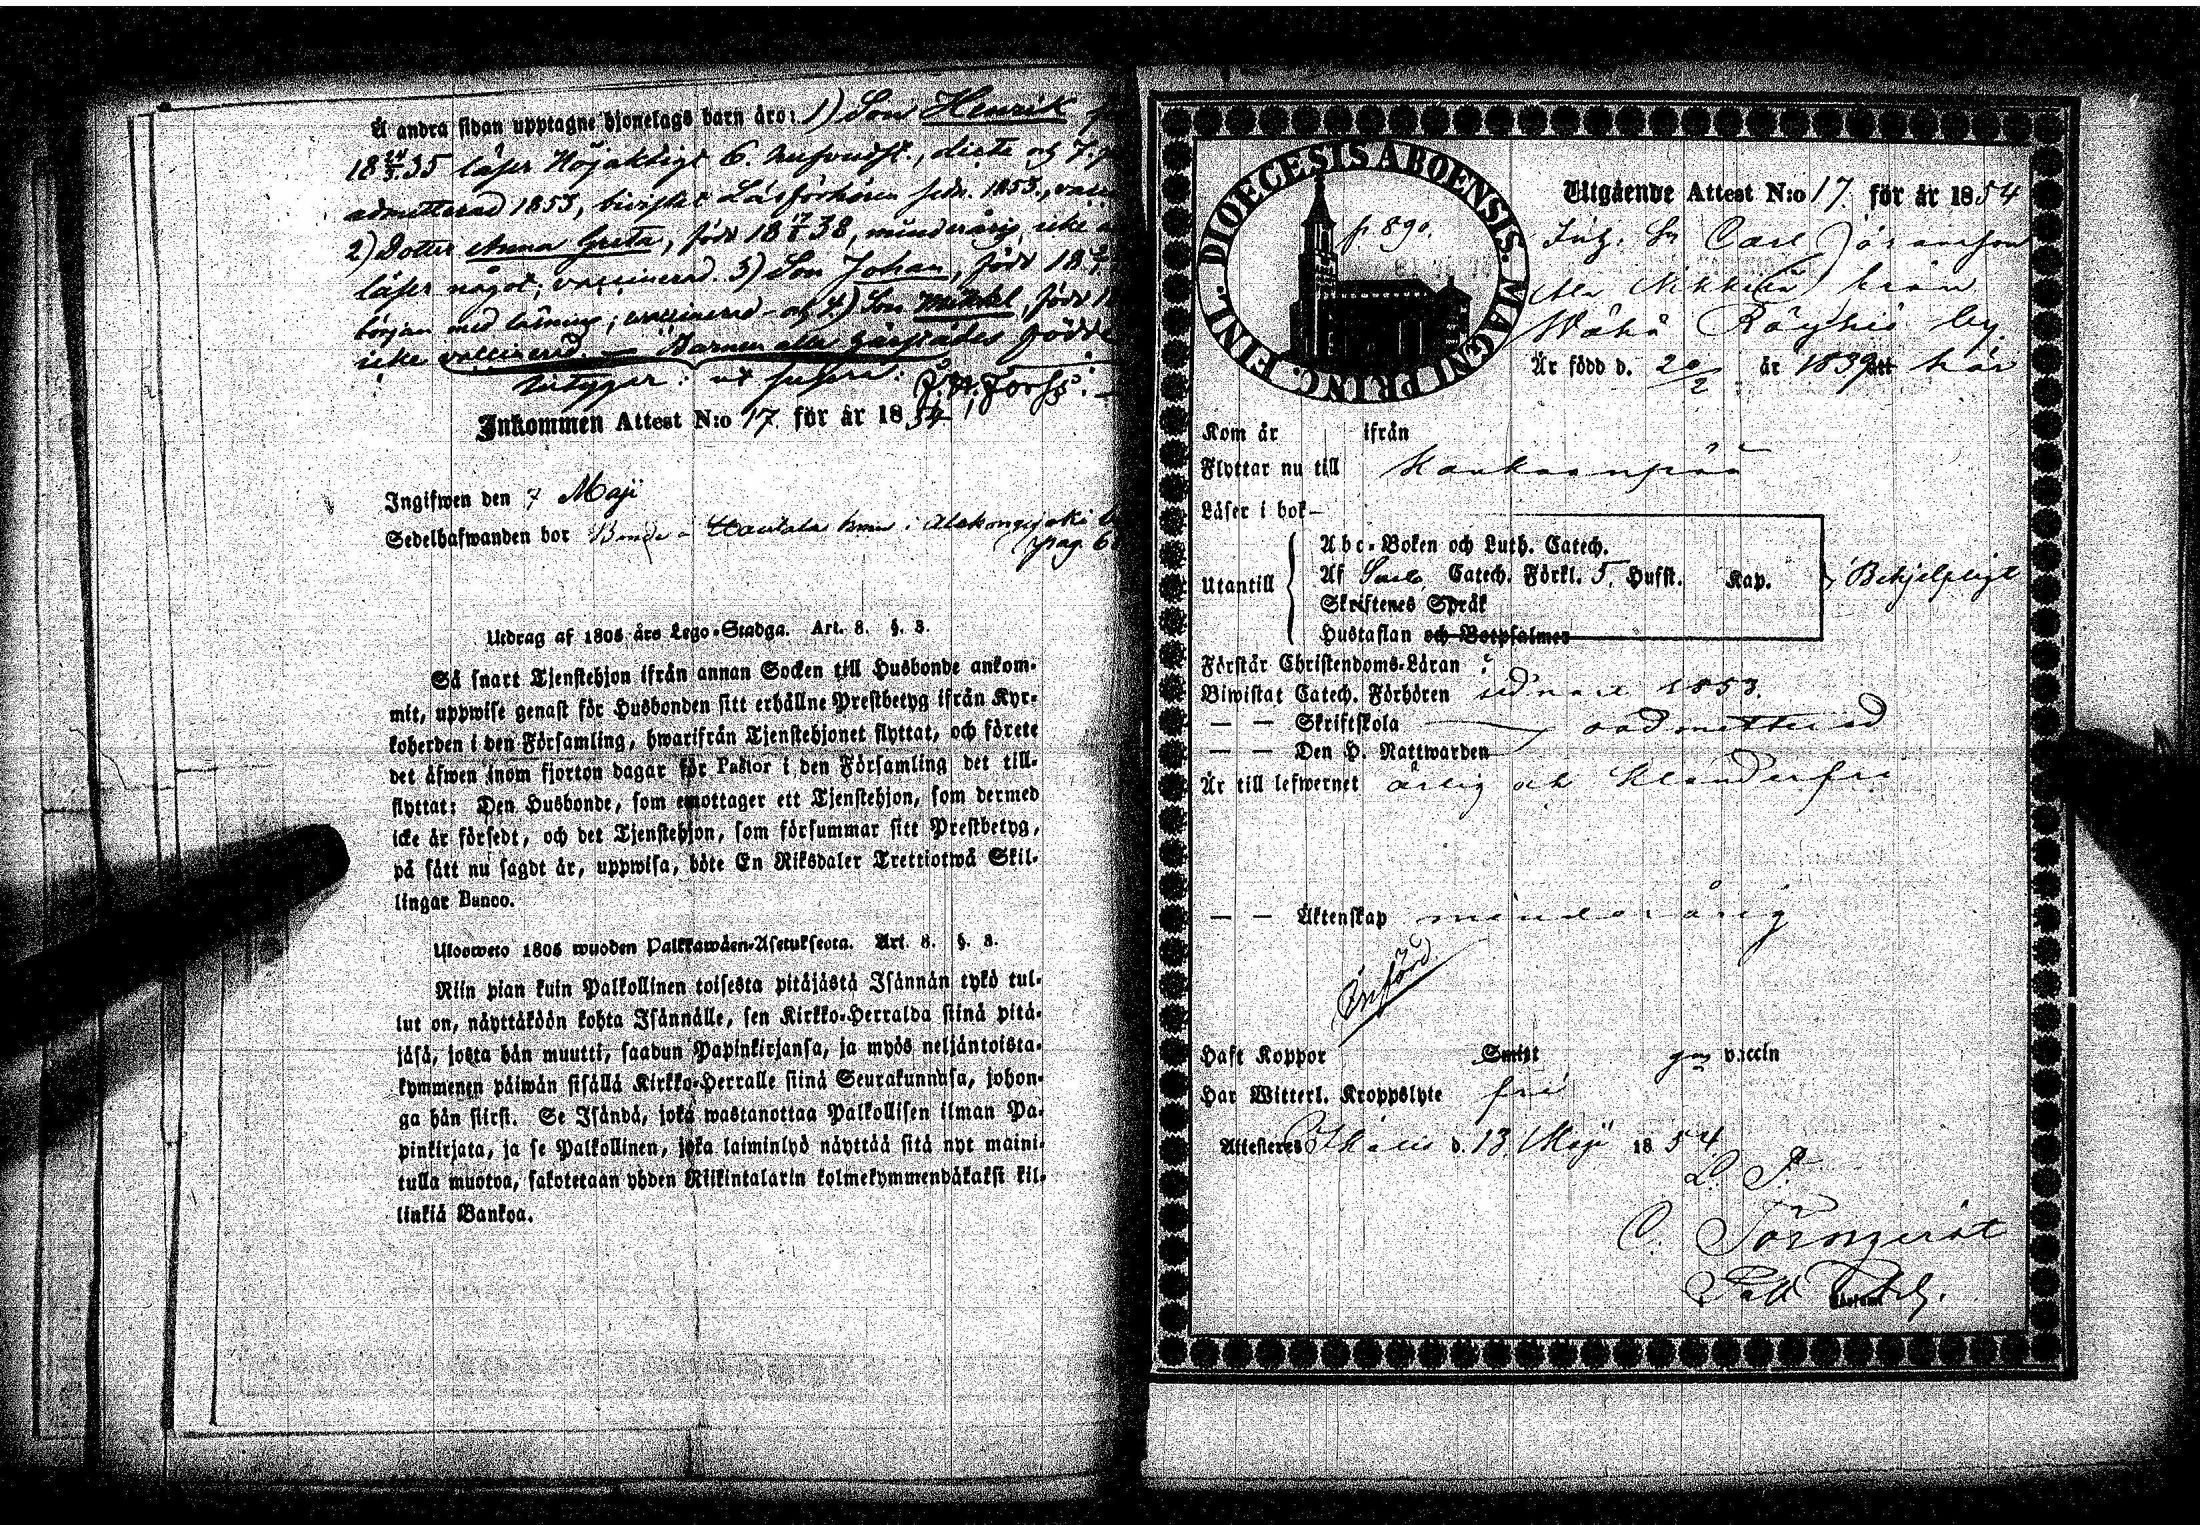 Å andra sidan upptagne hjonelags barn äro: 1) Son Henrik
18 24/3 35 läser Höjaktligt 6. hufvudst.,
admitterad 1853, bivistat Läsförhören sedn. 1853.,
2) Dotter Anna Greta, född 18 17/8 38, minderårig, icke
läser något; vaccinerad. 3) Son Johan, född 18
början med läsning; vaccinerad - och 4.) Son Mikkel, född
icke vaccinerad. — Barnen alla här födde
betygar: ut supra:
Inkommen Attest N:o 17 för år 1854
Ingifwen den 7 Maji
Sedelhafwanden bor Bonde å Hautala hem i Alakongijoki
pag. 6
Utdrag af 1805 års Lego-Stadga. Art. 8. §. 8.
Så snart Tjenstehjon ifrån annan Socken till Husbonde ankom-
mit, uppwise genast för Husbonden sitt erhållne Prestbetyg ifrån Kyr-
koherden i den Församling, hwarifrån Tjenstehjonet flyttat, och förete
det äfwen inom fjorton dagar för Pastor i den Församling det till-
flyttat: Den Husbonde, som emottager ett Tjenstehjon, som dermed
icke är försedt, och det Tjenstehjon, som försummar sitt Prestbetyg,
på sätt nu sagdt är, uppwisa, böte En Riksdaler Trettiotwå Skil-
lingar Banco.
Uloosweto 1805 wuoden Palkkawäen-Asetuksesta. Art. 8. §. 8.
Niin pian kuin Palkollinen toisesta pitäjästä Isännän tykö tul-
lut on, näyttäköön kohta Isännälle, sen Kirkko-Herralda siinä pitä-
jäsä, josta hän muutti, saadun Papinkirjansa, ja myös neljäntoista-
kymmenen päiwän sisällä Kirkko-Herralle siinä Seurakunnasa, johon-
ga hän siirsi. Se Isändä, joka wastanottaa Palkollisen ilman Pa-
pinkirjata, ja se Palkollinen, joka laiminlyö näyttää sitä nyt maini-
tulla muotoa, sakotetaan yhden Riikintalarin kolmekymmendäkaksi kil-
linkiä Bankoa.
DIOECESIS ABOENSIS. MAGNI PRINC. FINL.
p. 890.
Utgående Attest N:o 17. för år 1854
Carl Göransson
från
Wähä Röyhiö by
Är född d. 20/2 år 1839 här
Kom år ifrån
Flyttar nu till Kankaanpää
Läser i bok —
Utantill
Abc-Boken och Luth. Catech.
Af Catech. Förkl. 5. Hufst. Kap. Behjelpligt
Skriftenes Språk
Hustaflan och Botpsalmer
Förstår Christendoms-Läran
Biwistat Catech. Förhören sednast 1853.
— — Skriftskola admitterad
— — Den H. Nattwarden
Är till lefwernet ärlig och klanderfri
— — Äktenskap minderårig
Införd
Haft Koppor Smitt gm vaccin
Har Witterl. Kroppslyte fri
Attesteras d. 13. Maji 1854
L. P.
C. Törnqvist